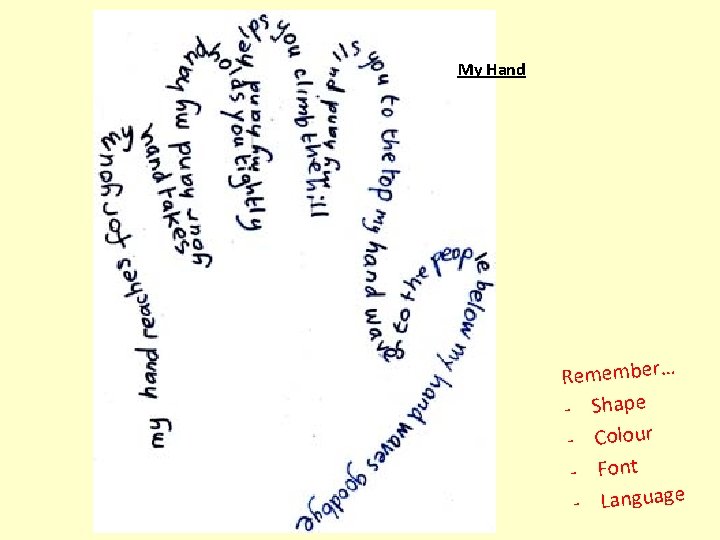 My Hand
my hand reaches for you my
hand takes
your hand my hand
holds you tightly
my hand helps
you climb the hill
my hand pulls
you to the top my hand waves
to the people below my hand waves goodbye
Remember...
- Shape
- Colour
- Font
- Language